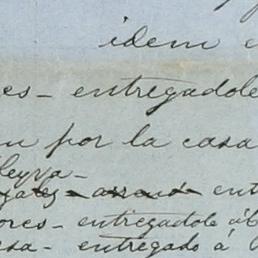 idem
es- entregadole
por la casa
leyva-
ent
ores- entregadole á
sa- entregado á